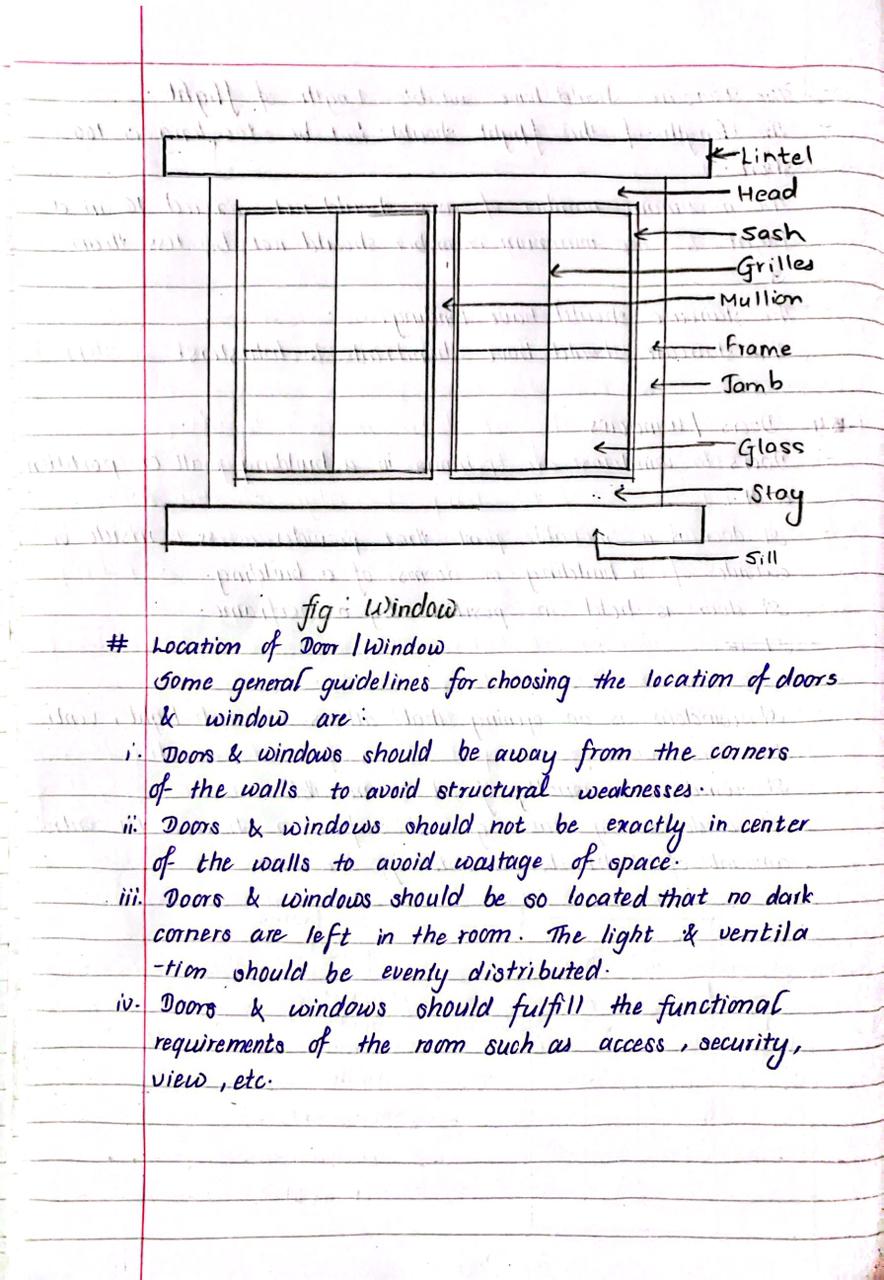 Lintel
Head
Sash
Grilles
Mullion
Frame
Jamb
Glass
Stay
Sill
fig : Window
# Location of Door / Window
Some general guidelines for choosing the location of doors
& window are :
i. Doors & windows should be away from the corners
of the walls to avoid structural weaknesses.
ii. Doors & windows should not be exactly in center
of the walls to avoid wastage of space.
iii. Doors & windows should be so located that no dark
corners are left in the room. The light & ventila
-tion should be evenly distributed.
iv. Doors & windows should fulfill the functional
requirements of the room such as access, security,
view, etc.